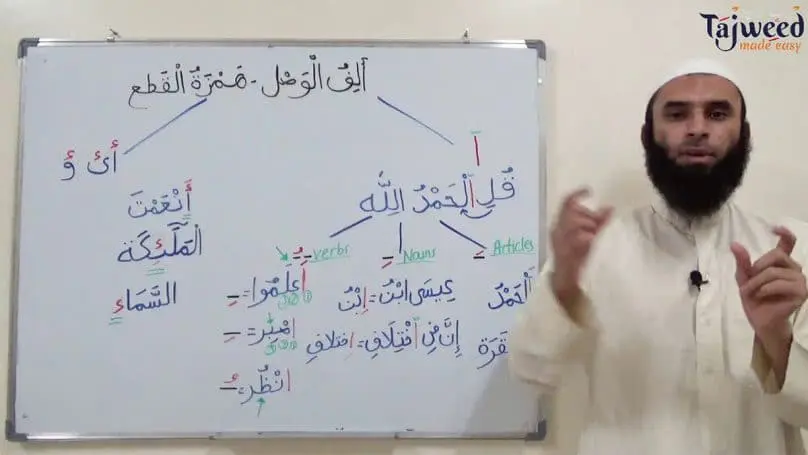 Tajweed
made easy
أَلِفُ الْوَصْل - هَمْزَةُ الْقَطع
أ ئ ؤ
ا
أَنْعَمْتَ
الْمَلَٰٓئِكَة
السَّمَاءِ
قُلِ الْحَمْدُ لِلَّهِ
verbs
Nouns
Articles
اعْلَمُوا =
عِيسَى ابْنُ = اِبْنُ
الْحَمْدُ
= 
إِنَّ فِي اخْتِلَافِ = اختلافِ
قَرَة
انْظُر =